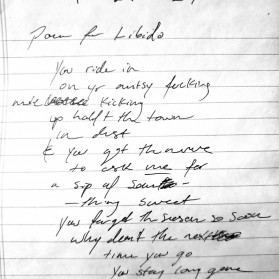 Poem for Libido
You ride in
on yr antsy fucking
mule kicking
up half the town
in dust
& you got the nerve
to ask me for
a sip of
- thing sweet
You forget the so soon
why don't the next
time you go
You stay long gone